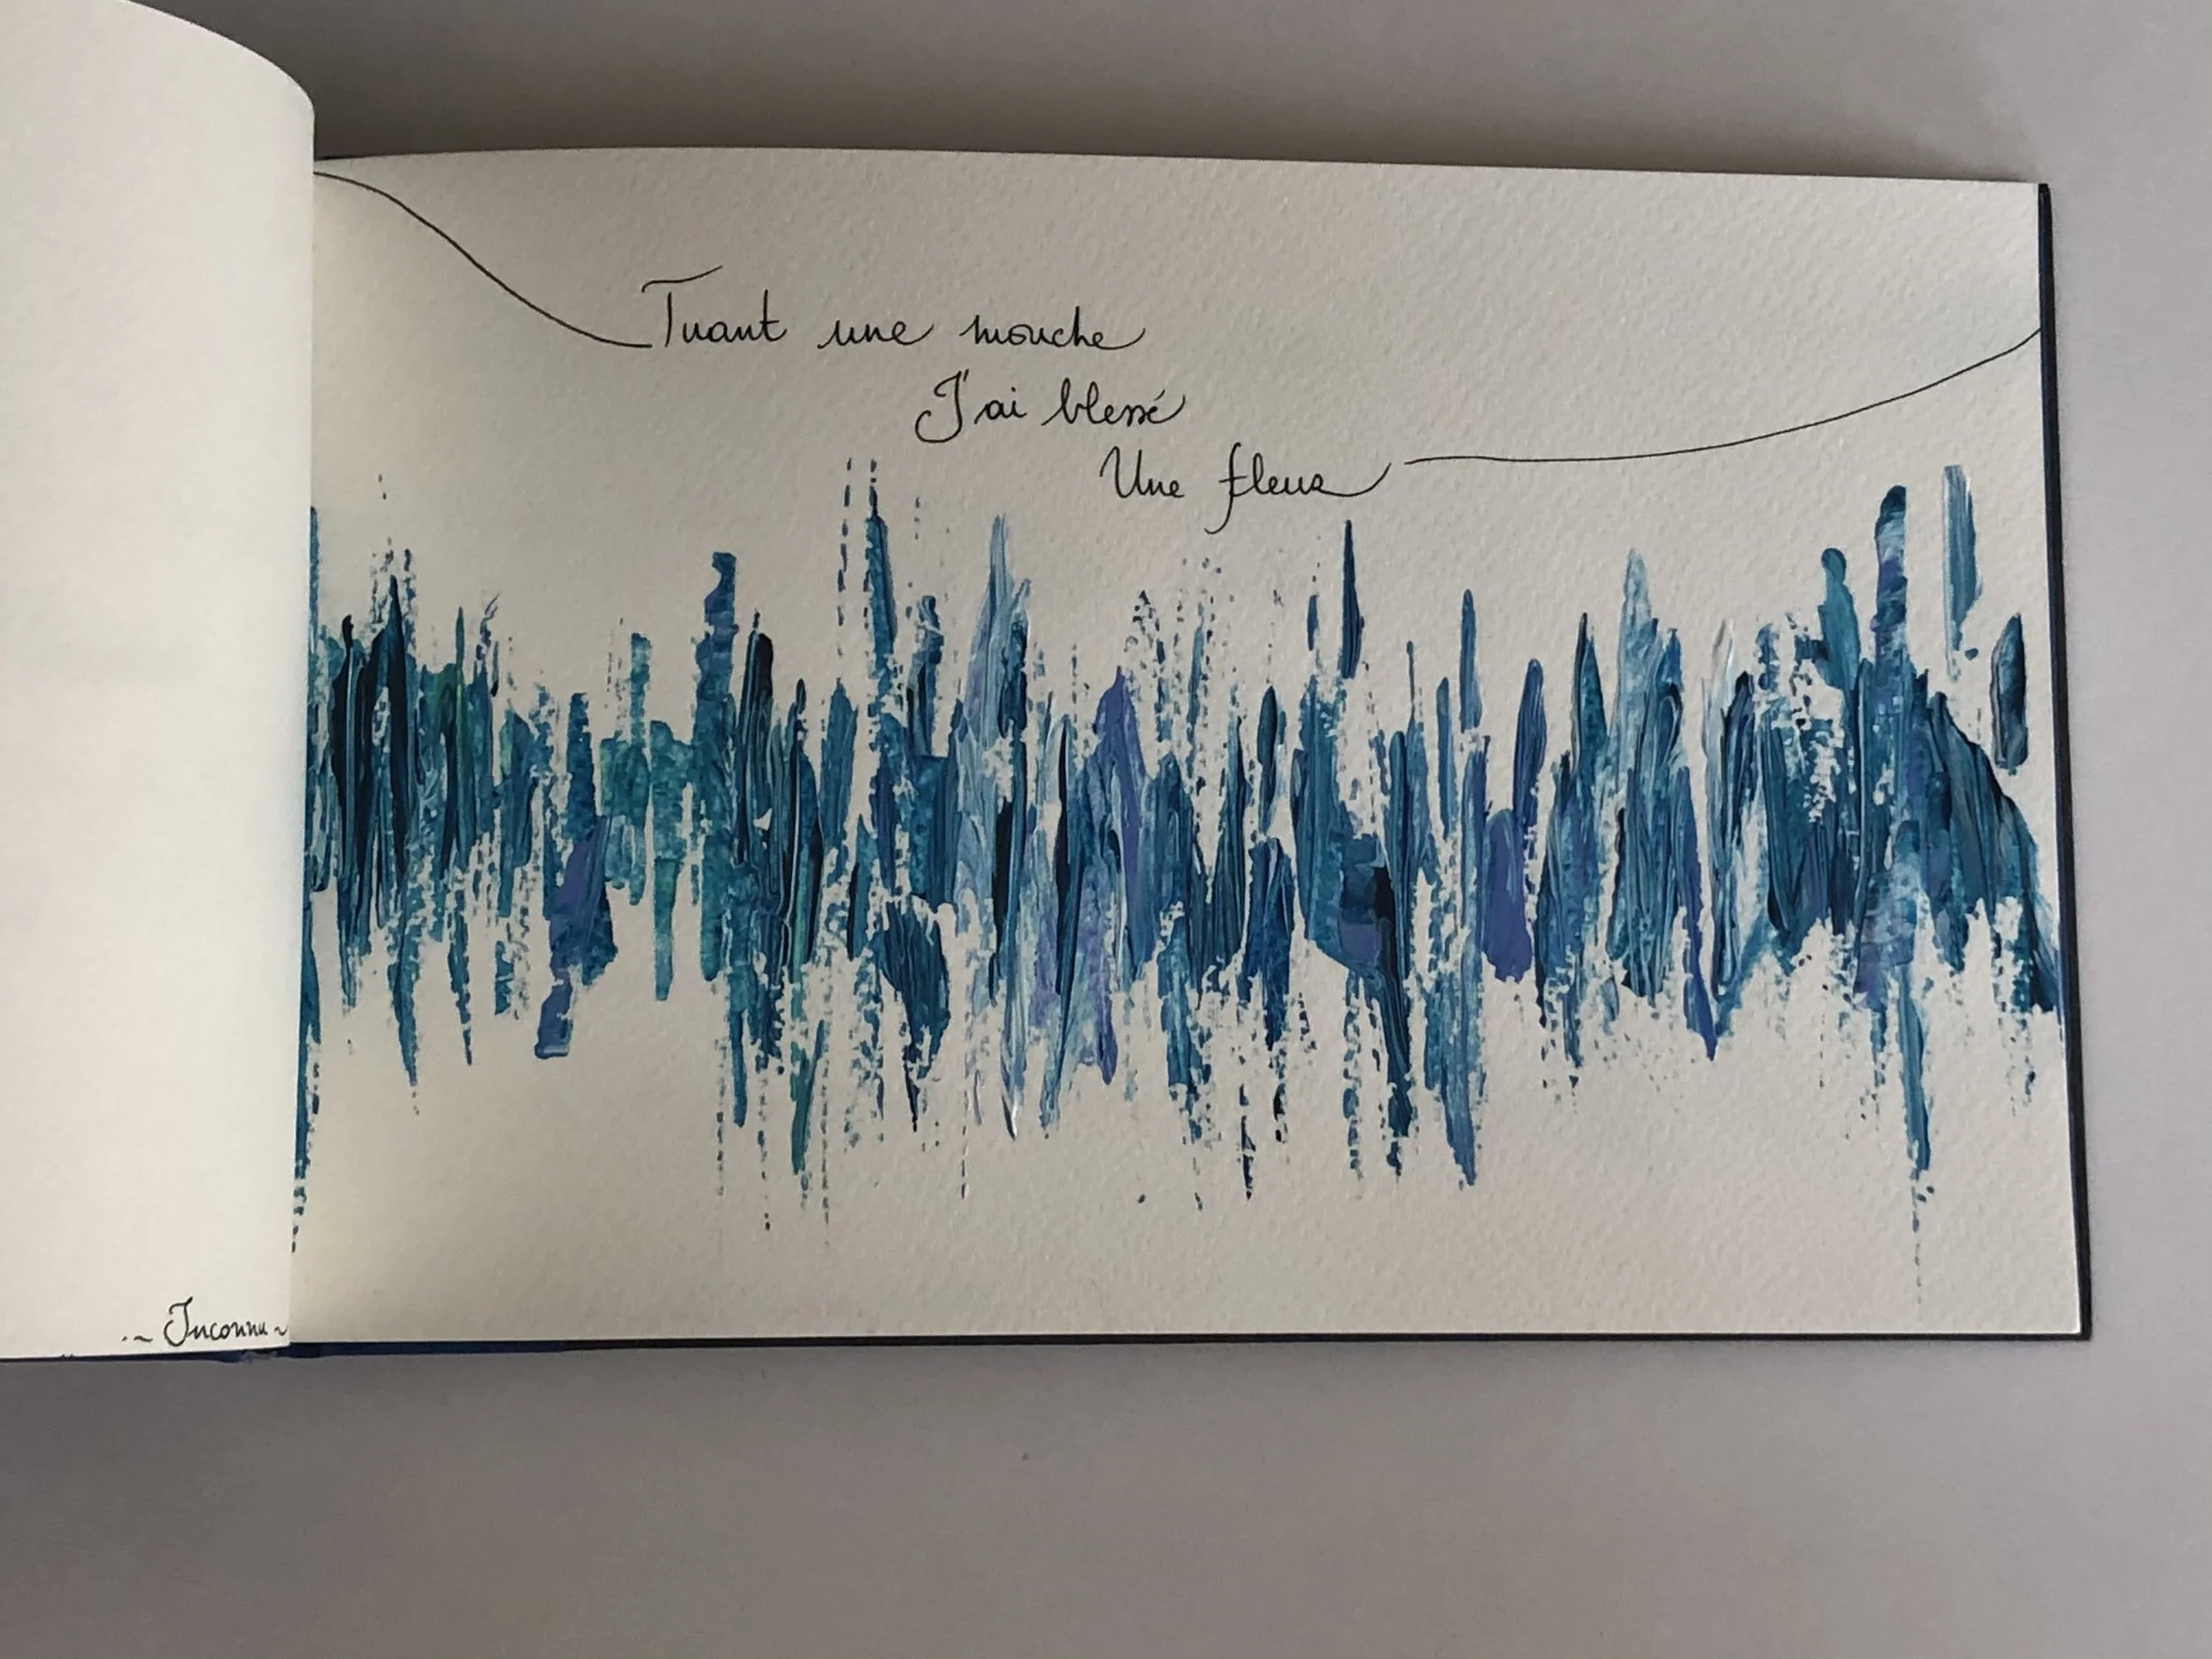 Tuant une mouche
J'ai blessé
Une fleur
~ Inconnu ~